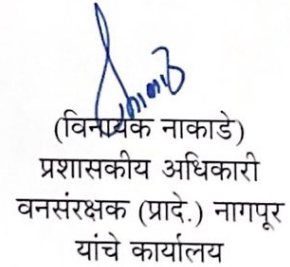 (विनायक नाकाडे)
प्रशासकीय अधिकारी
वनसंरक्षक (प्रादे.) नागपूर
यांचे कार्यालय